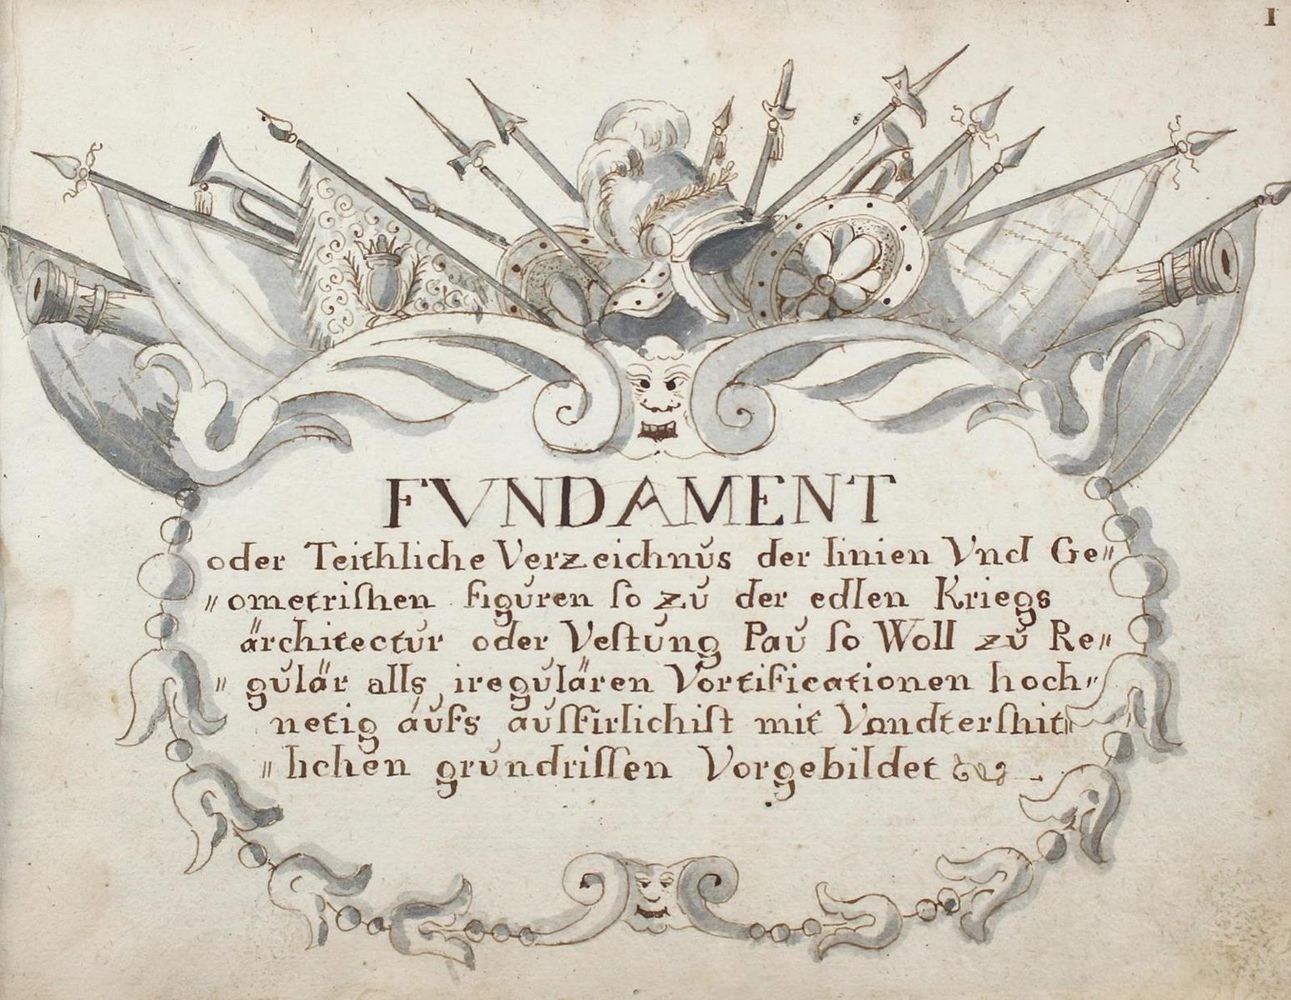 1
FVNDAMENT
oder Teithliche Verzeichnŭs der linien Vnd Ge〃
〃ometrishen figŭren ſo zŭ der edlen Kriegs
ärchitectŭr oder Veſtŭng Paŭ ſo Woll zŭ Re〃
〃gŭlär allſ iregŭlären Vortificationen hoch〃
netig aŭfs aŭſfirlichiſt mit Vondterſhit〃
〃lichen grŭndriſſen Vorgebildet